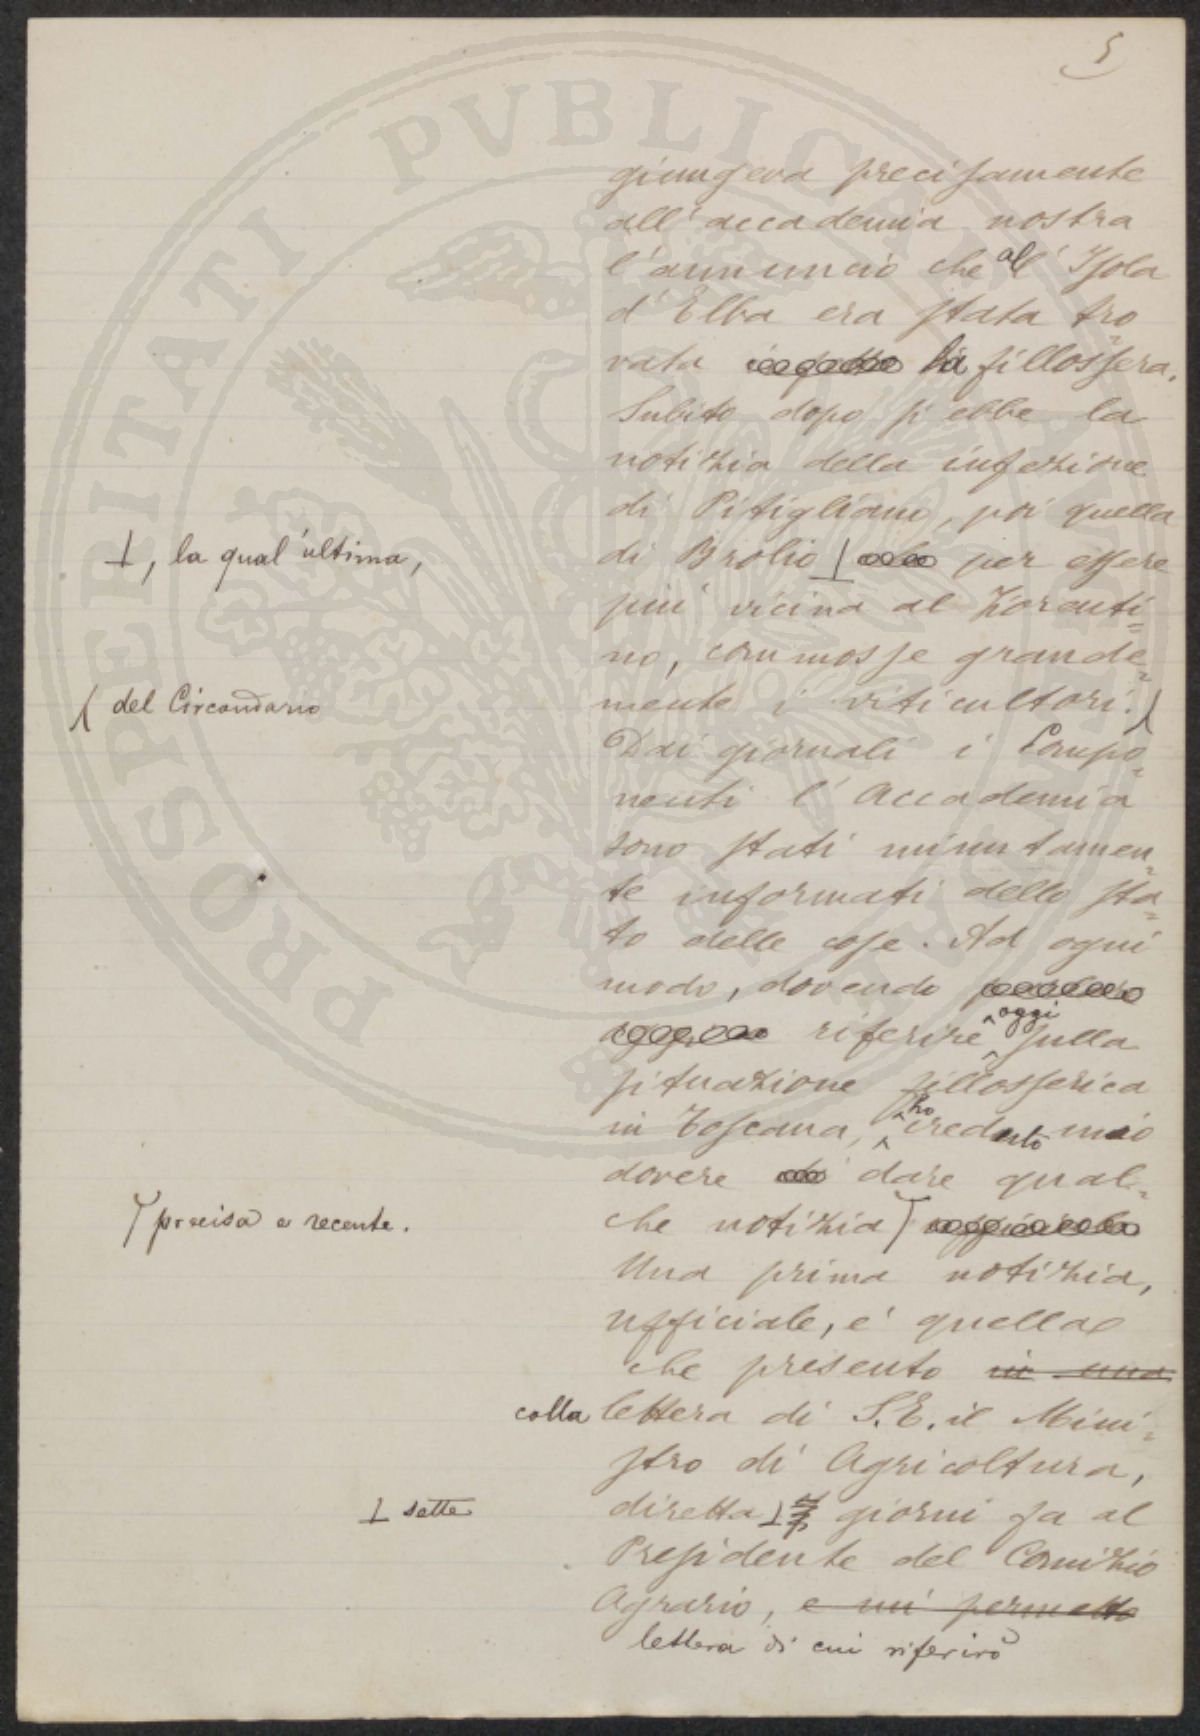 5
giungeva precisamente
all'accademia nostra
l'annuncio che all'Isola
d'Elba era stata tro
vata la fillossera.
Subito dopo si ebbe la
notizia della infezione
di Pitigliano, poi quella
⊥, la qual'ultima,
di Brolio ⊥ per essere
più vicina al Fiorenti=
no, commosse grande=
mente i viticultori.
del Circondario
Dai giornali i Compo=
nenti l'Accademia
sono stati minutamen=
te informati dello sta=
to delle cose. Ad ogni
modo, dovendo
riferire oggi sulla
situazione fillosserica
in Toscana, ho creduto mio
dovere dare qual=
che notizia
precisa e recente.
Una prima notizia,
ufficiale, e' quella
che presento in una
colla lettera di S.E. il Mini=
stro di Agricoltura,
diretta ⊥ 7 giorni fa al
⊥ sette
Presidente del Comizio
Agrario, e mi permetto
lettera di cui riferirò
PROSPERITATI PVBLICAE AVGENDAE